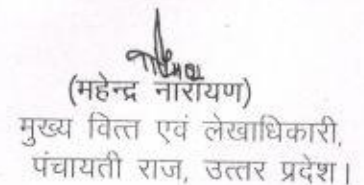 (महेन्द्र नारायण)
मुख्य वित्त एवं लेखाधिकारी,
पंचायती राज, उत्तर प्रदेश।